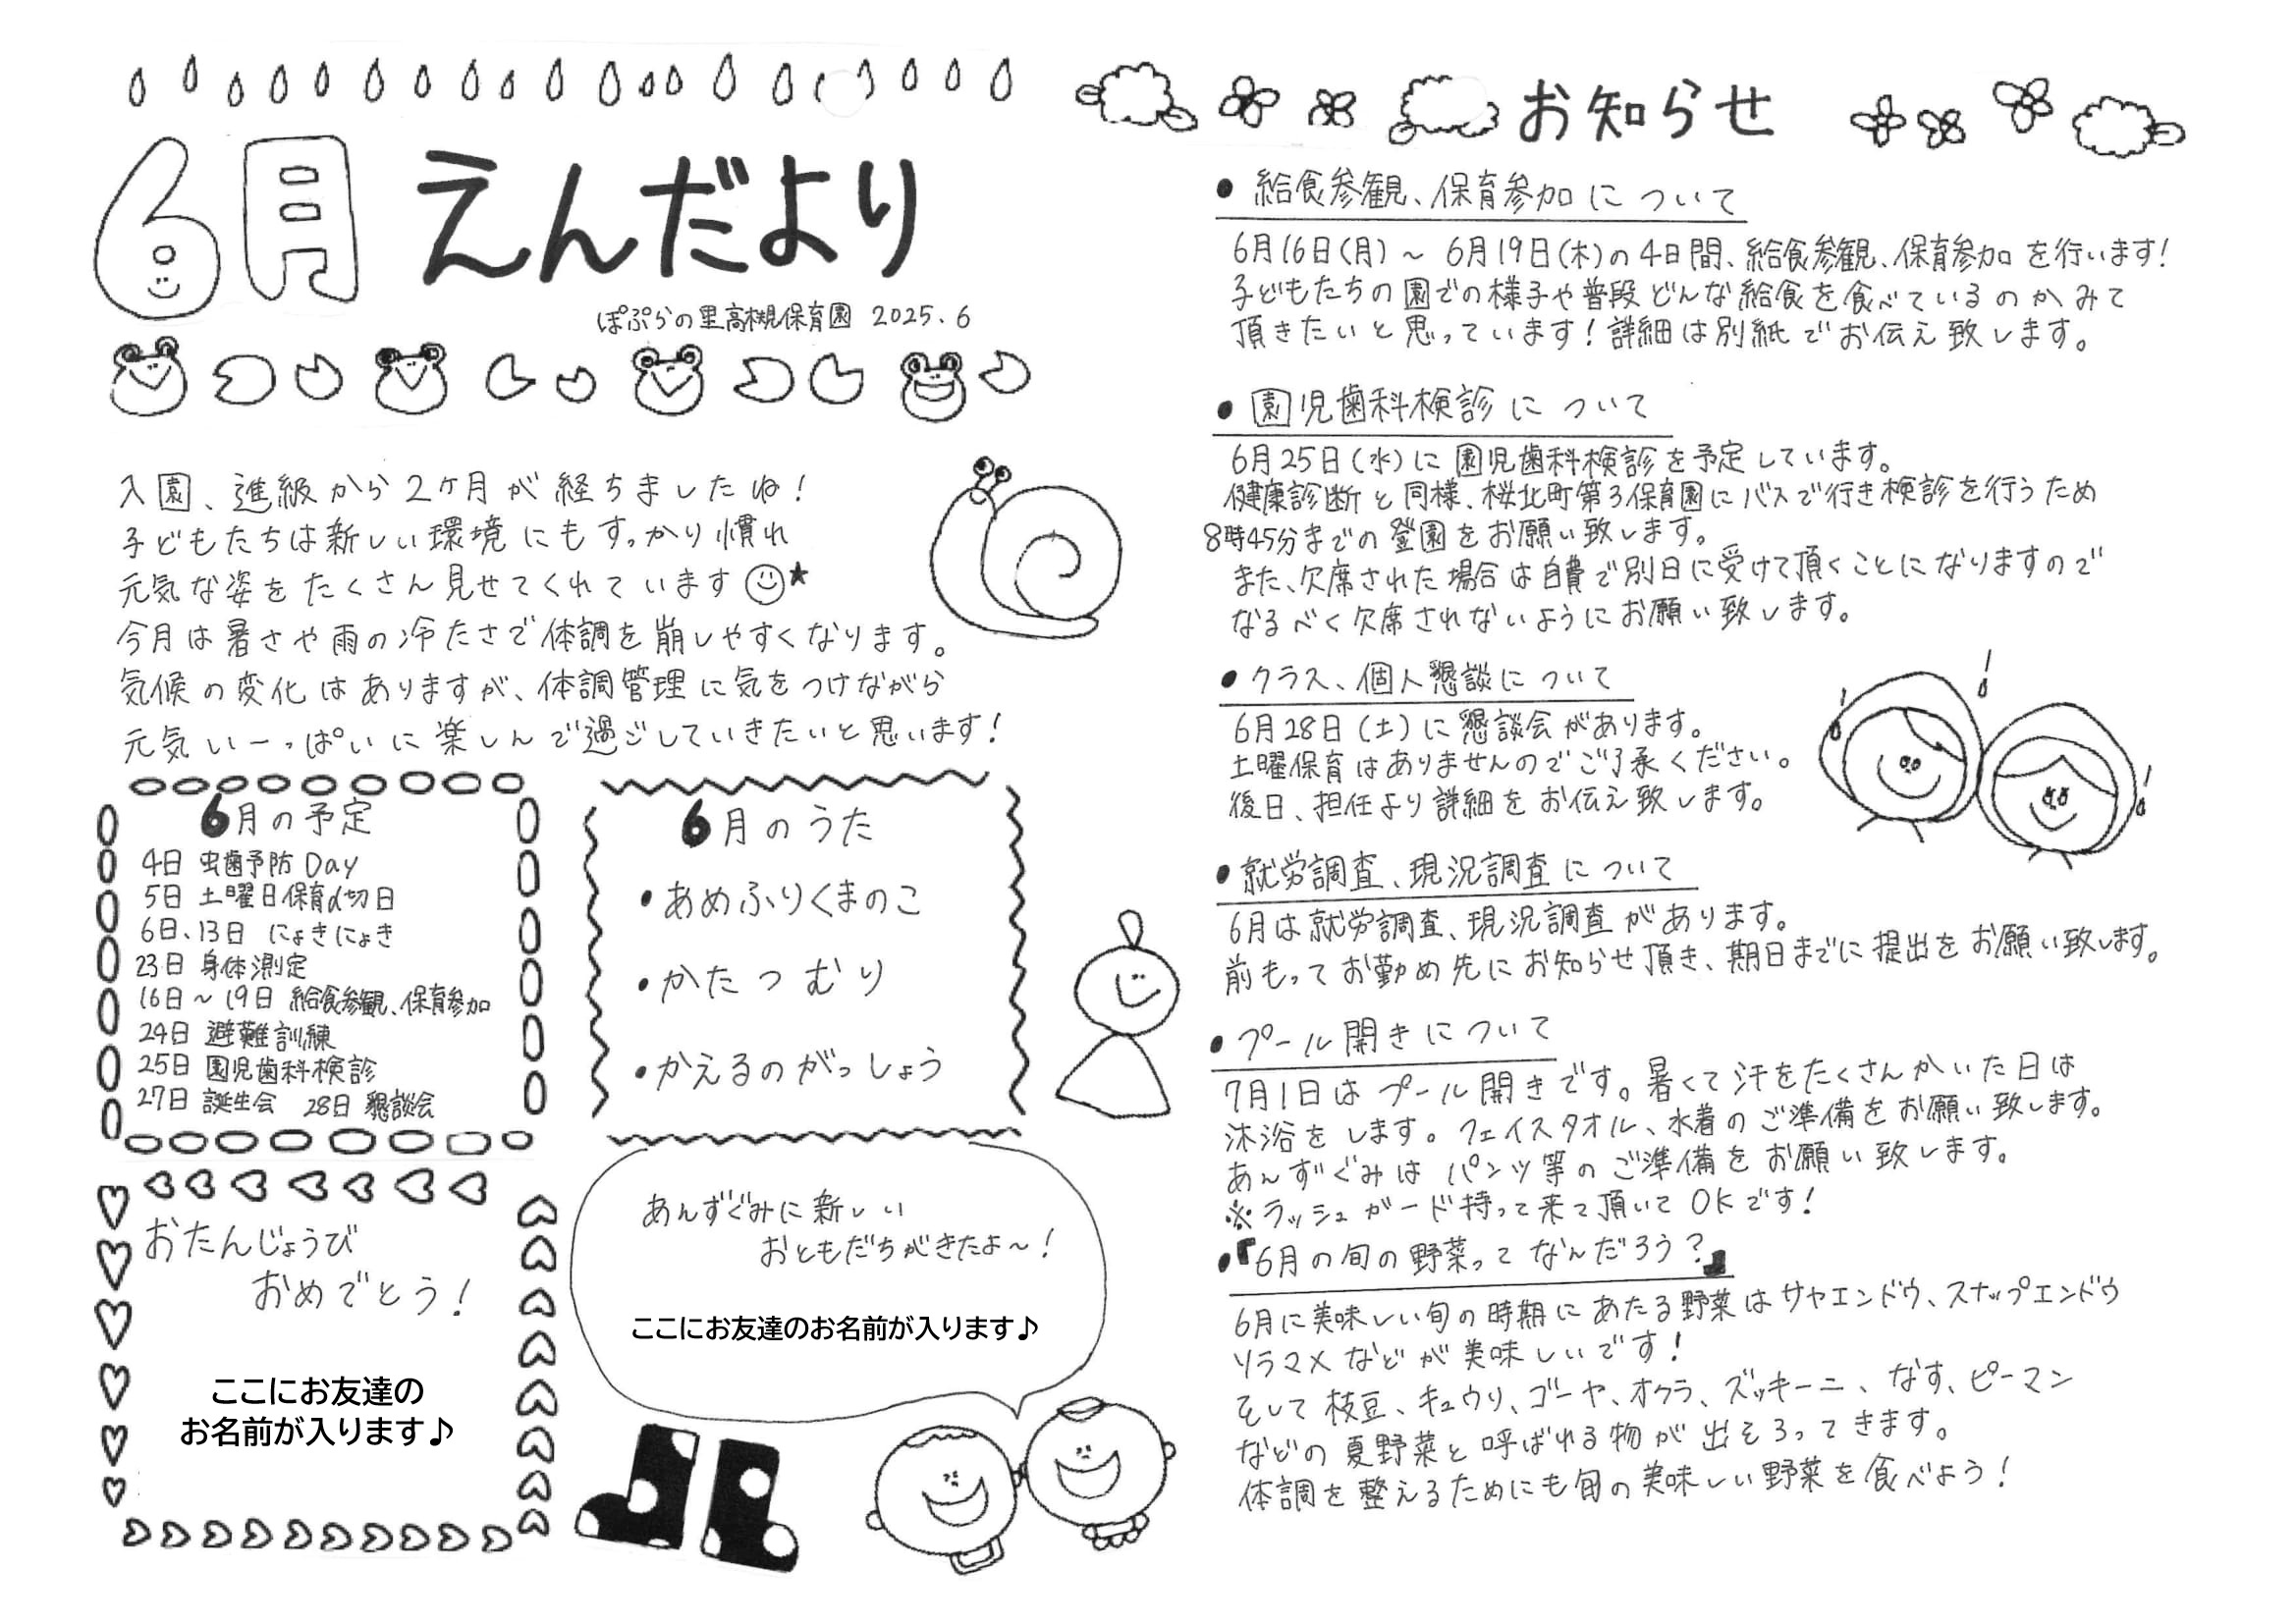 6月 えんだより
ぽぷらの里高槻保育園 2025.6
入園、進級から2ヶ月が経ちましたね!
子どもたちは新しい環境にもすっかり慣れ
元気な姿をたくさん見せてくれています☺★
今月は暑さや雨の冷たさで体調を崩しやすくなります。
気候の変化はありますが、体調管理に気をつけながら
元気いーっぱいに楽しんで過ごしていきたいと思います!
6月の予定
4日 虫歯予防Day
5日 土曜日保育〆切日
6日、13日 にょきにょき
23日 身体測定
16日〜19日 給食参観、保育参加
24日 避難訓練
25日 園児歯科検診
27日 誕生会 28日 懇談会
6月のうた
・あめふりくまのこ
・かたつむり
・かえるのがっしょう
おたんじょうび
おめでとう!
ここにお友達の
お名前が入ります♪
あんずぐみに新しい
おともだちがきたよ〜!
ここにお友達のお名前が入ります♪
お知らせ
● 給食参観、保育参加について
6月16日(月)〜6月19日(木)の4日間、給食参観、保育参加を行います!
子どもたちの園での様子や普段どんな給食を食べているのかみて
頂きたいと思っています!詳細は別紙でお伝え致します。
● 園児歯科検診について
6月25日(水)に園児歯科検診を予定しています。
健康診断と同様、桜北町第3保育園にバスで行き検診を行うため
8時45分までの登園をお願い致します。
また、欠席された場合は自費で別日に受けて頂くことになりますので
なるべく欠席されないようにお願い致します。
● クラス、個人懇談について
6月28日(土)に懇談会があります。
土曜保育はありませんのでご了承ください。
後日、担任より詳細をお伝え致します。
● 就労調査、現況調査について
6月は就労調査、現況調査があります。
前もってお勤め先にお知らせ頂き、期日までに提出をお願い致します。
● プール開きについて
7月1日はプール開きです。暑くて汗をたくさんかいた日は
沐浴をします。フェイスタオル、水着のご準備をお願い致します。
あんずぐみはパンツ等のご準備をお願い致します。
※ラッシュガード持って来て頂いてOKです!
●『6月の旬の野菜ってなんだろう?』
6月に美味しい旬の時期にあたる野菜はサヤエンドウ、スナップエンドウ
ソラマメなどが美味しいです!
そして枝豆、キュウリ、ゴーヤ、オクラ、ズッキーニ、なす、ピーマン
などの夏野菜と呼ばれる物が出そろってきます。
体調を整えるためにも旬の美味しい野菜を食べよう!